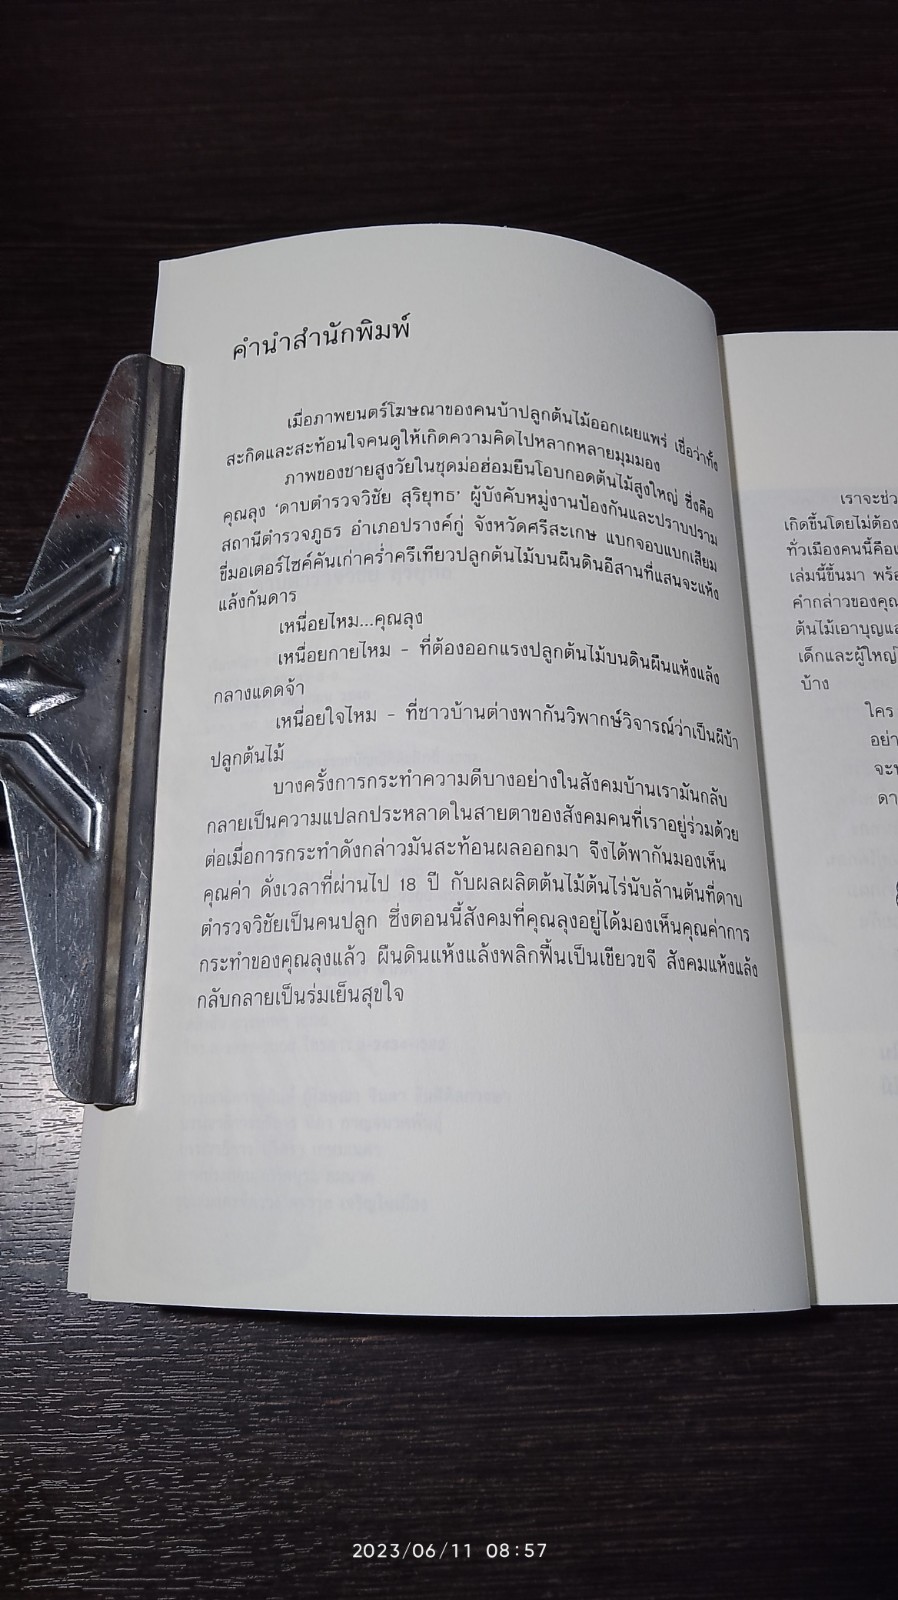 คำนำสำนักพิมพ์
เมื่อภาพยนตร์โฆษณาของคนบ้าปลูกต้นไม้ออกเผยแพร่ เชื่อว่าทั้ง
สะกิดและสะท้อนใจคนดูให้เกิดความคิดไปหลากหลายมุมมอง
ภาพของชายสูงวัยในชุดม่อฮ่อมยืนโอบกอดต้นไม้สูงใหญ่ ซึ่งคือ
คุณลุง ‘ดาบตำรวจวิชัย สุริยุทธ’ ผู้บังคับหมู่งานป้องกันและปราบปราม
สถานีตำรวจภูธร อำเภอปรางค์กู่ จังหวัดศรีสะเกษ แบกจอบแบกเสียม
ขี่มอเตอร์ไซค์คันเก่าคร่ำครึเที่ยวปลูกต้นไม้บนผืนดินอีสานที่แสนจะแห้ง
แล้งกันดาร
เหนื่อยไหม...คุณลุง
เหนื่อยกายไหม - ที่ต้องออกแรงปลูกต้นไม้บนดินผืนแห้งแล้ง
กลางแดดจ้า
เหนื่อยใจไหม - ที่ชาวบ้านต่างพากันวิพากษ์วิจารณ์ว่าเป็นผีบ้า
ปลูกต้นไม้
บางครั้งการกระทำความดีบางอย่างในสังคมบ้านเรามันกลับ
กลายเป็นความแปลกประหลาดในสายตาของสังคมคนที่เราอยู่ร่วมด้วย
ต่อเมื่อการกระทำดังกล่าวมันสะท้อนผลออกมา จึงได้พากันมองเห็น
คุณค่า ดั่งเวลาที่ผ่านไป 18 ปี กับผลผลิตต้นไม้ต้นไร่นับล้านต้นที่ดาบ
ตำรวจวิชัยเป็นคนปลูก ซึ่งตอนนี้สังคมที่คุณลุงอยู่ได้มองเห็นคุณค่าการ
กระทำของคุณลุงแล้ว ผืนดินแห้งแล้งพลิกฟื้นเป็นเขียวขจี สังคมแห้งแล้ง
กลับกลายเป็นร่มเย็นสุขใจ
เราจะช่ว
เกิดขึ้นโดยไม่ต้อง
ทั่วเมืองคนนี้คือ
เล่มนี้ขึ้นมา พร้อ
คำกล่าวของคุณ
ต้นไม้เอาบุญแ
เด็กและผู้ใหญ่
บ้าง
ใคร
อย่า
จะ
ดา
2023/06/11 08:57